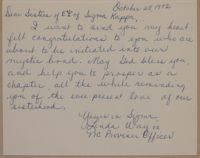 October 28, 1972
Dear Sisters of ΕΨ of Sigma Kappa,
I want to send you my heart-
felt congratulations to you who are
about to be initiated into our
mystic bond. May God bless you
and help you to prosper as a
chapter all the while reminding
you of the ever-present love of our
sisterhood.
Yours in Sigma,
Linda
NC Province Officer